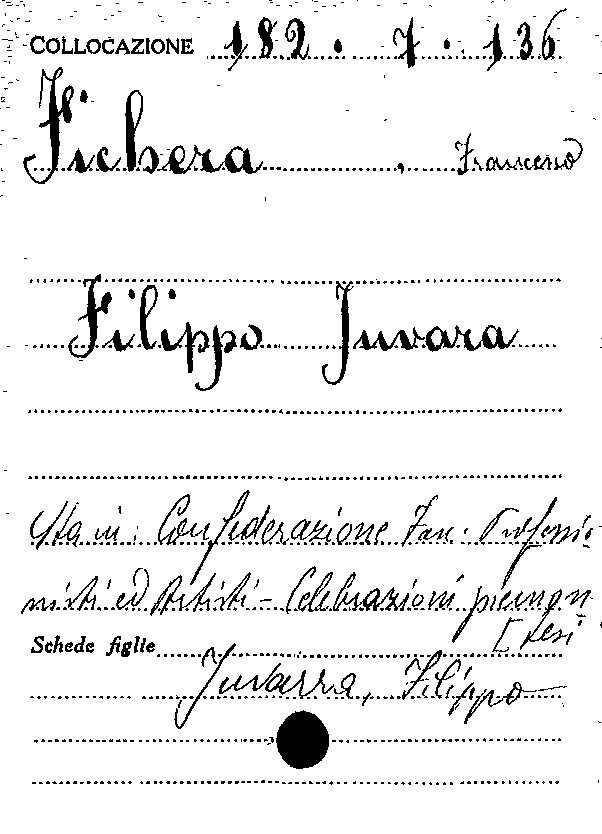 COLLOCAZIONE 182 . 7 . 136
Fichera , Francesco
Filippo Juvara
Sta in: Confederazione Fasc. Professio-
nisti ed Artisti - Celebrazioni piemon
[tesi
Schede figlie
Juvarra, Filippo